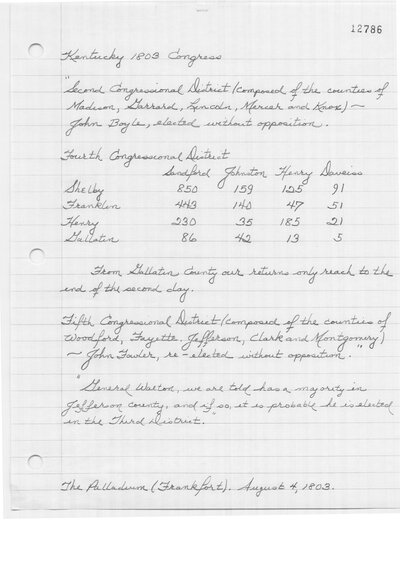 12786
Kentucky 1803 Congress
"Second Congressional District (composed of the counties of
Madison, Garrard, Lincoln, Mercer and Knox) ~
John Boyle, elected without opposition.
Fourth Congressional District
Sandford Johnston Henry Daveiss
Shelby 850 159 125 91
Franklin 443 140 47 51
Henry 230 35 185 21
Gallatin 86 42 13 5
From Gallatin County our returns only reach to the
end of the second day.
Fifth Congressional District (composed of the counties of
Woodford, Fayette, Jefferson, Clark and Montgomery)
~ John Fowler, re-elected without opposition."
"General Walton, we are told has a majority in
Jefferson county, and if so, it is probable he is elected
in the Third District."
The Palladium (Frankfort). August 4, 1803.